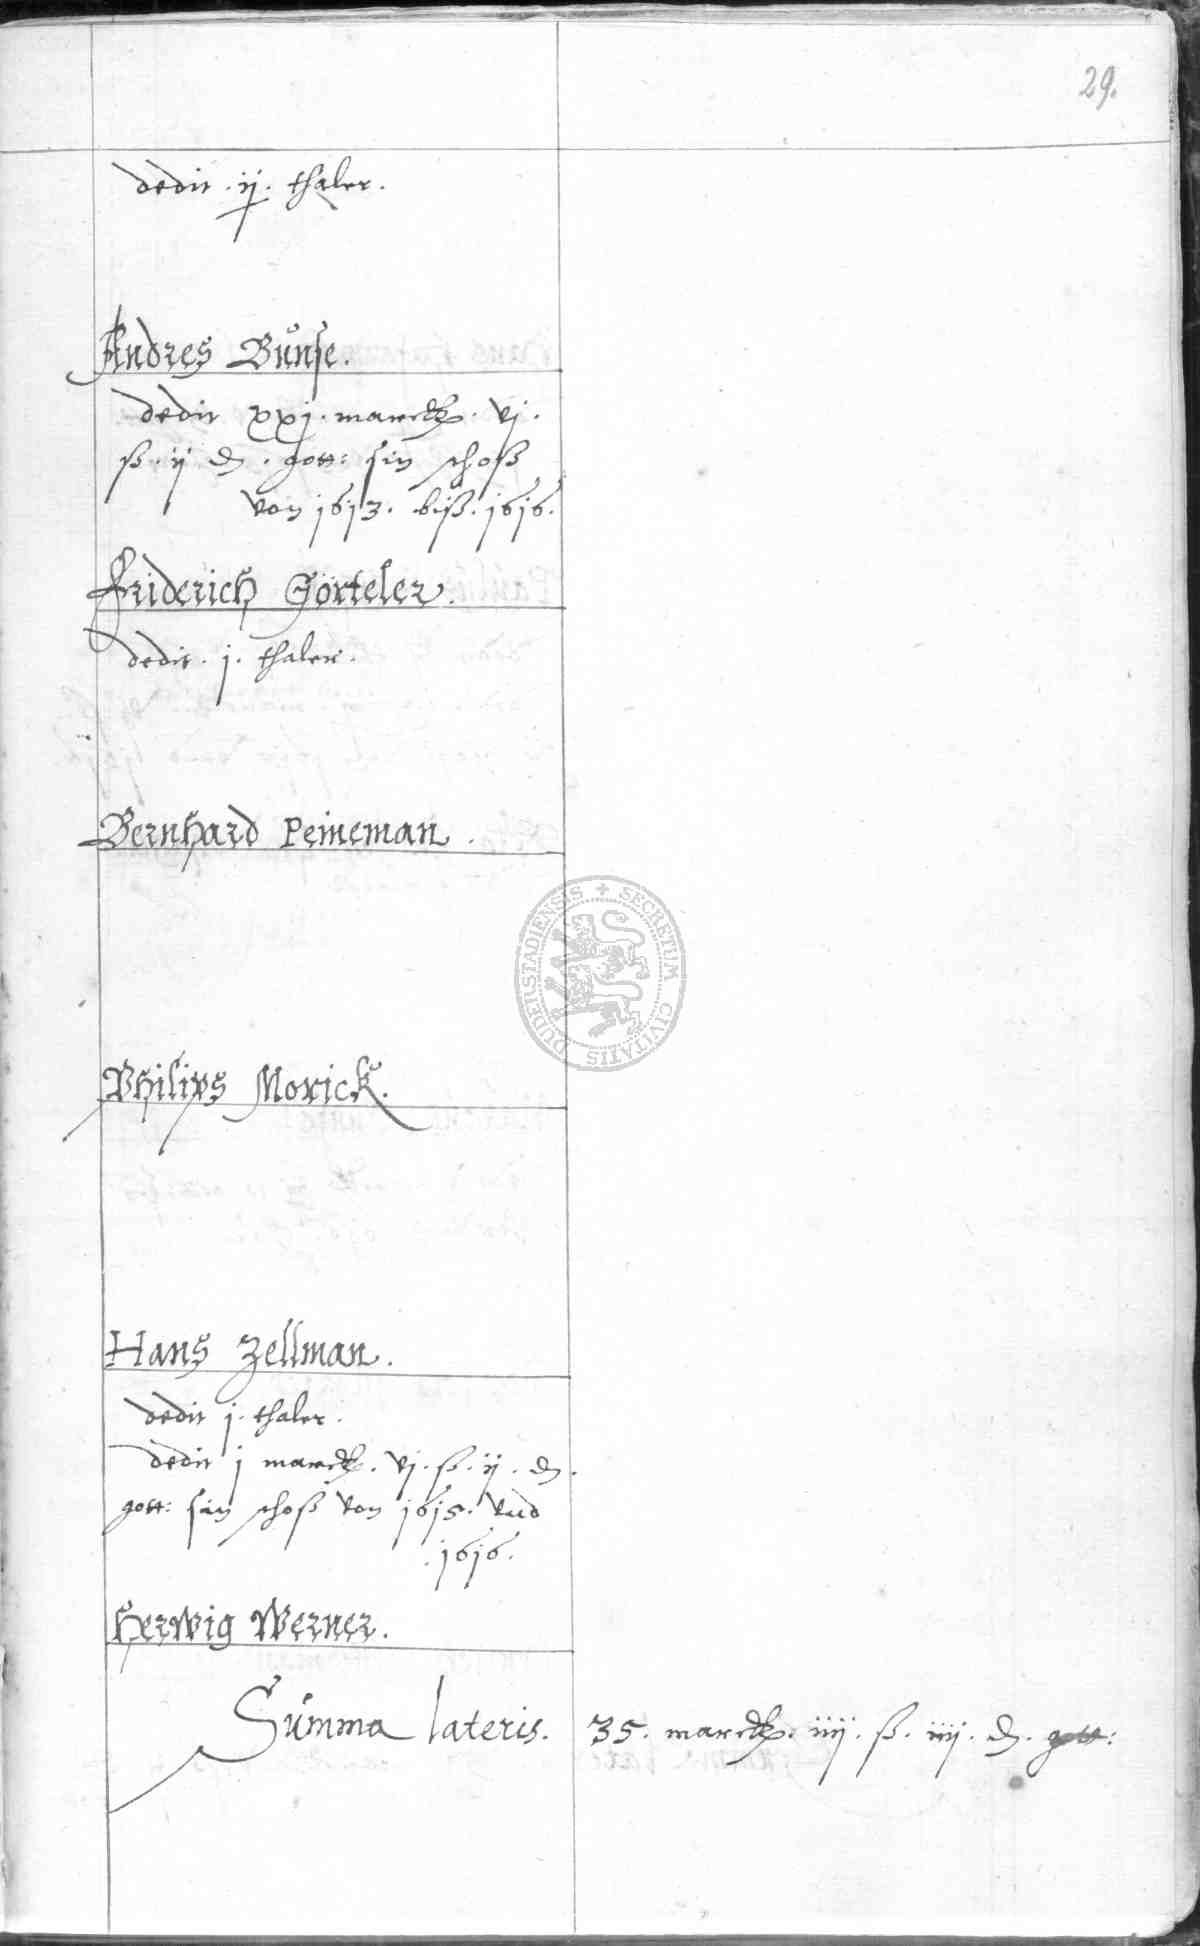 29.
dedit . ij . thaler .
Andres Bunse .
dedit xxj . marck . vj .
ß . ij ₰ . gott : sin schoß
von 1613 . biß . 1616 .
Friderich Görteler .
dedit . j . thaler .
Bernhard Peineman .
Philips Morick .
Hans Zellman .
dedit j . thaler .
dedit j marck . vj . ß . ij . ₰ .
gott : sin schoß von 1615 . vnd
. 1616 .
Herwig Werner .
Summa lateris . 35 . marck . iiij . ß . iiij . ₰ . gott :
SECRETUM CIVITATIS DUDERSTADIENSIS